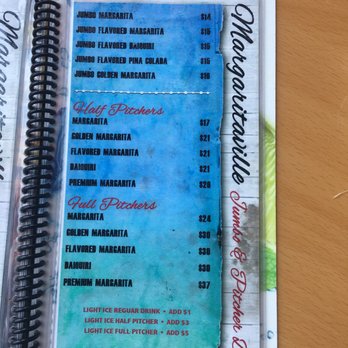 JUMBO MARGARITA $14
JUMBO FLAVORED MARGARITA $15
JUMBO FLAVORED DAIQUIRI $15
JUMBO FLAVORED PINA COLADA $15
JUMBO GOLDEN MARGARITA $16
Half Pitchers
MARGARITA $17
GOLDEN MARGARITA $21
FLAVORED MARGARITA $21
DAIQUIRI $21
PREMIUM MARGARITA $28
Full Pitchers
MARGARITA $24
GOLDEN MARGARITA $30
FLAVORED MARGARITA $30
DAIQUIRI $30
PREMIUM MARGARITA $37
LIGHT ICE REGUAR DRINK • ADD $1
LIGHT ICE HALF PITCHER • ADD $3
LIGHT ICE FULL PITCHER • ADD $5
Margaritaville
Jumbo & Pitcher